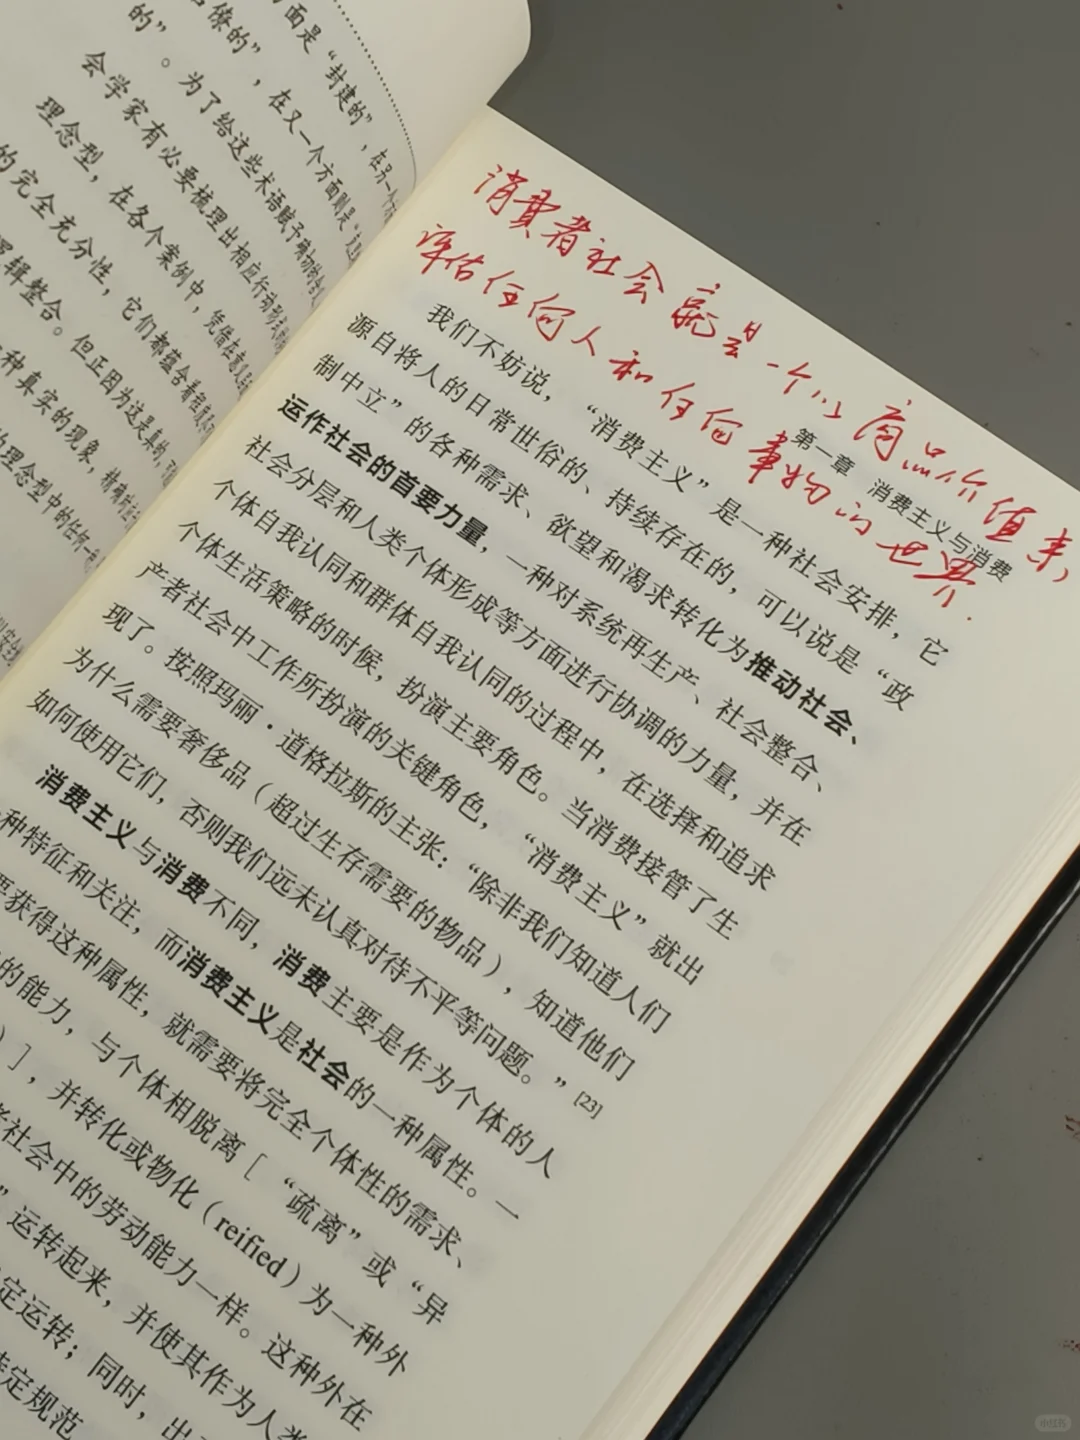 面是“封建的”，在另一个方
僚的”，在又一个方面则是
的”。为了给这些术语赋予
会学家有必要梳理出相应行动形式的
理念型，在各个案例中，凭借在意义
的完全充分性，它们都蕴含着
逻辑整合。但正因为这是真的，
种真实的现象，精确
的理念型中的任何一
消费者社会就是一个以商品价值来
评估任何人和任何事物的世界.
第一章 消费主义与消费
我们不妨说，“消费主义”是一种社会安排，它
源自将人的日常世俗的、持续存在的，可以说是“政
制中立”的各种需求、欲望和渴求转化为推动社会、
运作社会的首要力量，一种对系统再生产、社会整合、
社会分层和人类个体形成等方面进行协调的力量，并在
个体自我认同和群体自我认同的过程中，在选择和追求
个体生活策略的时候，扮演主要角色。当消费接管了生
产者社会中工作所扮演的关键角色，“消费主义”就出
现了。按照玛丽·道格拉斯的主张：“除非我们知道人们
为什么需要奢侈品（超过生存需要的物品），知道他们
如何使用它们，否则我们远未认真对待不平等问题。”[23]
消费主义与消费不同，消费主要是作为个体的人
种特征和关注，而消费主义是社会的一种属性。一
要获得这种属性，就需要将完全个体性的需求、
的能力，与个体相脱离［“疏离”或“异
）］，并转化或物化（reified）为一种外
者社会中的劳动能力一样。这种外在
”运转起来，并使其作为人类
定运转；同时，出
特定规范
小红书